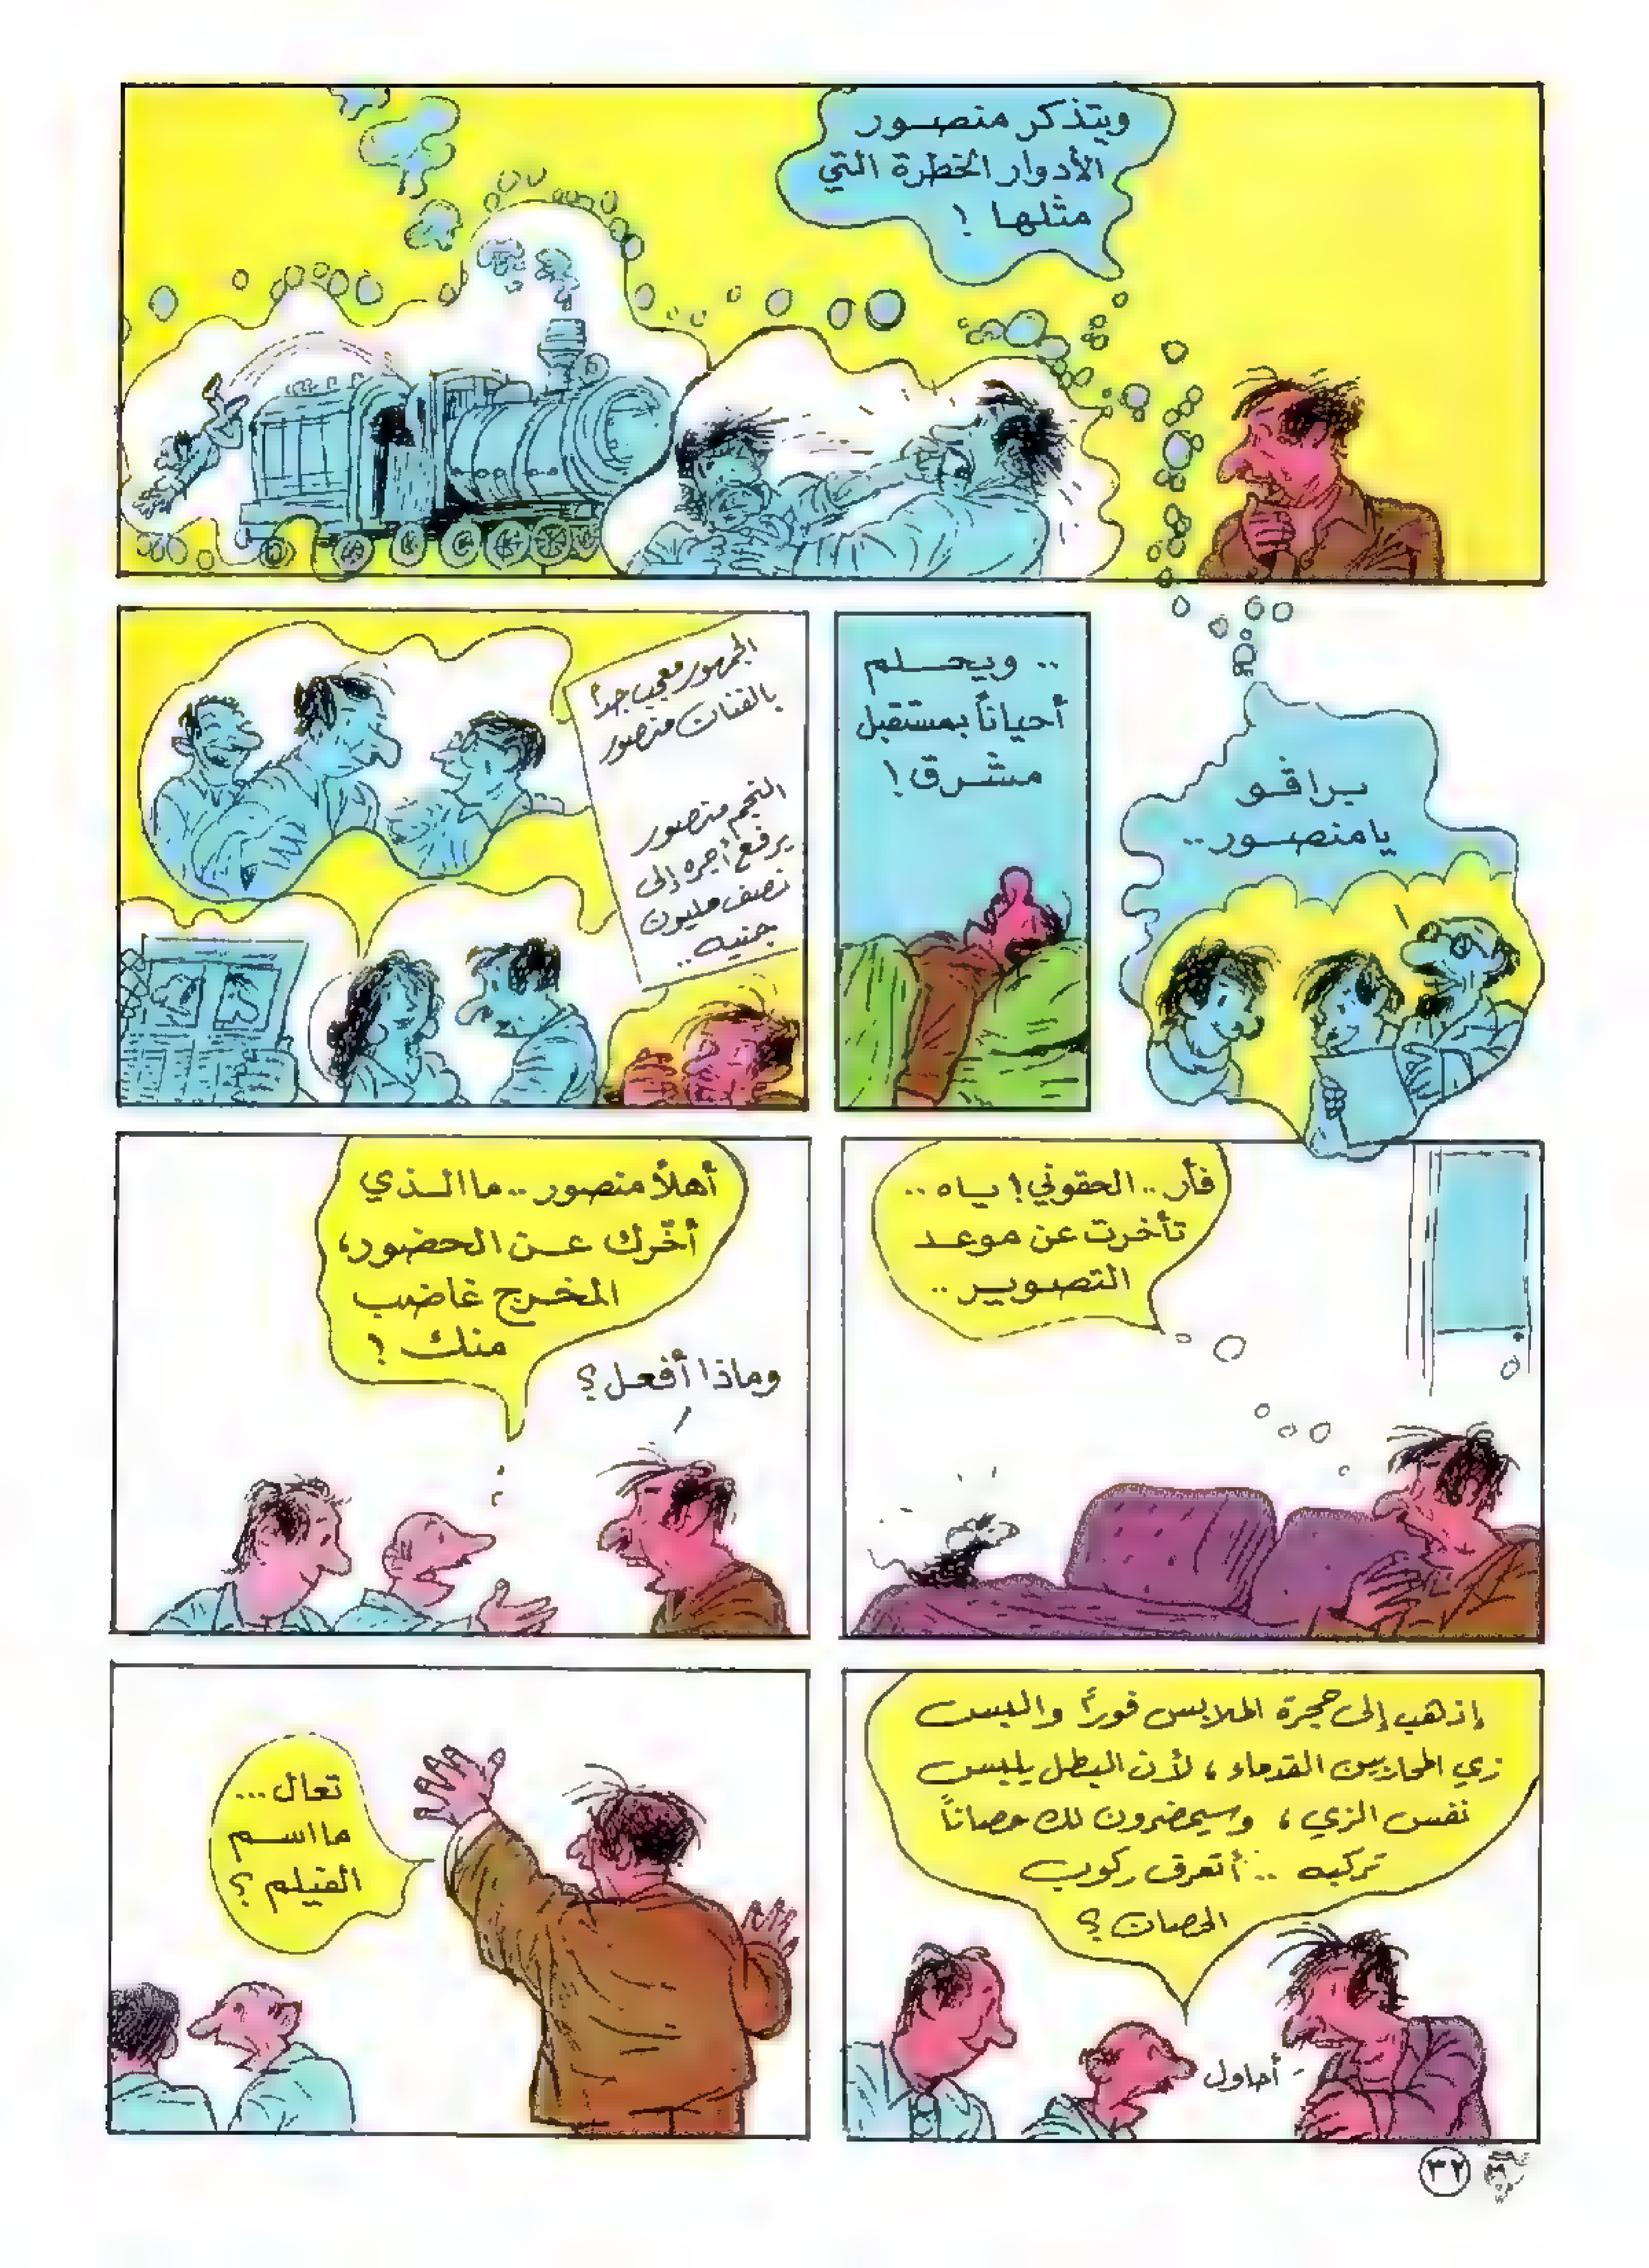 ويتذكر منصور
الأدوار الخطرة التي
مثلها !
براڤو
يا منصور..
.. ويحلم
أحياناً بمستقبل
مشرق !
الجمهور معجب جداً
بالفنان منصور
النجم منصور
يرفع أجره إلى
نصف مليون
جنيه..
فأر.. الحقوني ! ياه..
تأخرت عن موعد
التصوير..
أهلاً منصور.. ما الذي
أخّرك عن الحضور،
المخرج غاضب
منك ؟
وماذا أفعل ؟
إذهب إلى حجرة الملابس فوراً والبس
زي المحاربين القدماء، لأن البطل يلبس
نفس الزي، وسيحضرون لك حصاناً
تركبه .. أتعرف ركوب
الحصان ؟
أحاول
تعال ...
ما اسم
الفيلم ؟
٣٢